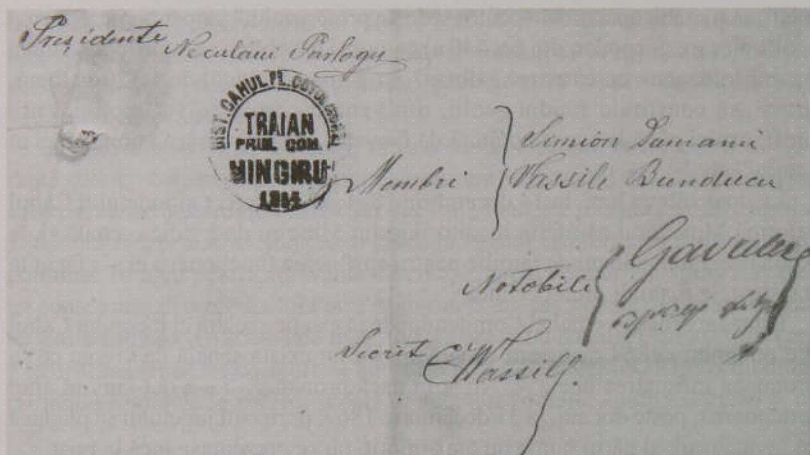 Presidente Neculaui Parlogu
DIST. CAHUL PL.
TRAIAN
PRIM. COM.
MINGIRU
Membri
Simion Damanu
Vassile Bunducu
Notabile
Secret Vassile